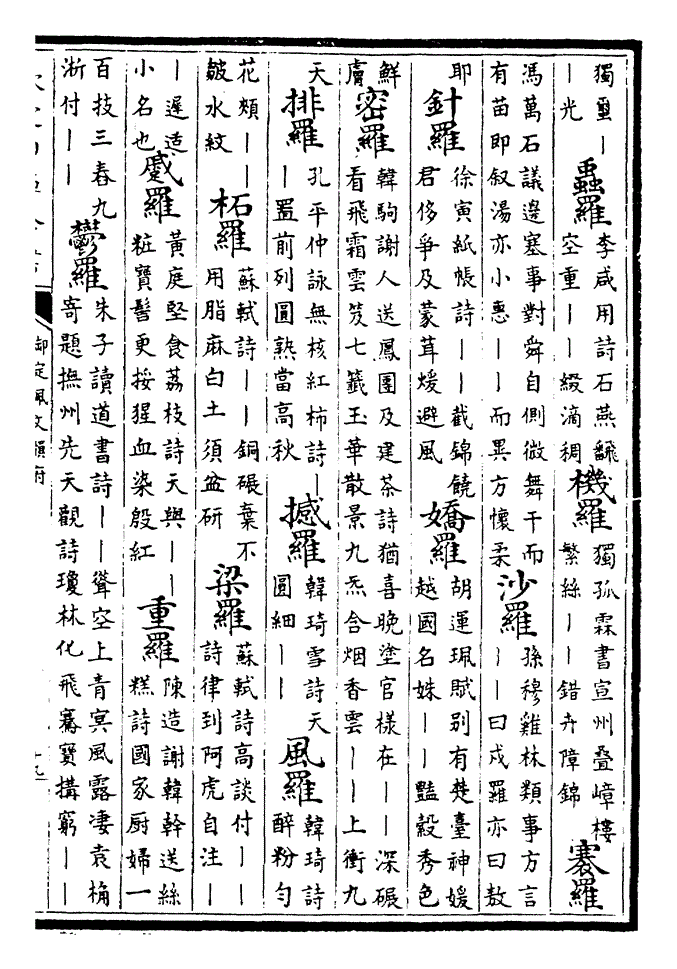 獨璽｜
｜光
蟲羅
李咸用詩石燕翻
空重｜｜綴滴稠
機羅
獨孤霖書宣州疊嶂樓
繁絲｜｜錯卉障錦
褰羅
馮萬石議邊塞事對舜自側微舞干而
有苗即叙湯亦小惠｜｜而異方懷柔
沙羅
孫穆雞林類事方言
｜｜曰戍羅亦曰敖
耶
針羅
徐寅紙帳詩｜｜截錦饒
君侈爭及蒙茸煖避風
嬌羅
胡運珮賦别有楚臺神媛
越國名姝｜｜豔縠秀色
鮮
膚
密羅
韓駒謝人送鳳團及建茶詩猶喜晚塗官樣在｜｜深碾
看飛霜雲笈七籤玉華散景九炁含烟香雲｜｜上衝九
天
排羅
孔平仲詠無核紅柿詩｜
｜置前列圓熟當高秋
撼羅
韓琦雪詩天
圓細｜｜
風羅
韓琦詩
醉粉勻
花頰｜｜
皺水紋
柘羅
蘇軾詩｜｜銅碾棄不
用脂麻白土須盆研
梁羅
蘇軾詩高談付｜｜
詩律到阿虎自注｜｜
｜遲造
小名也
蹙羅
黃庭堅食荔枝詩天與｜｜
粧寶髻更挼猩血染殷紅
重羅
陳造謝韓幹送絲
糕詩國家厨婦一
百技三舂九
淅付｜｜
鬱羅
朱子讀道書詩｜｜聳空上青冥風露凄袁桷
寄題撫州先天觀詩瓊林化飛騫寶搆窮｜｜